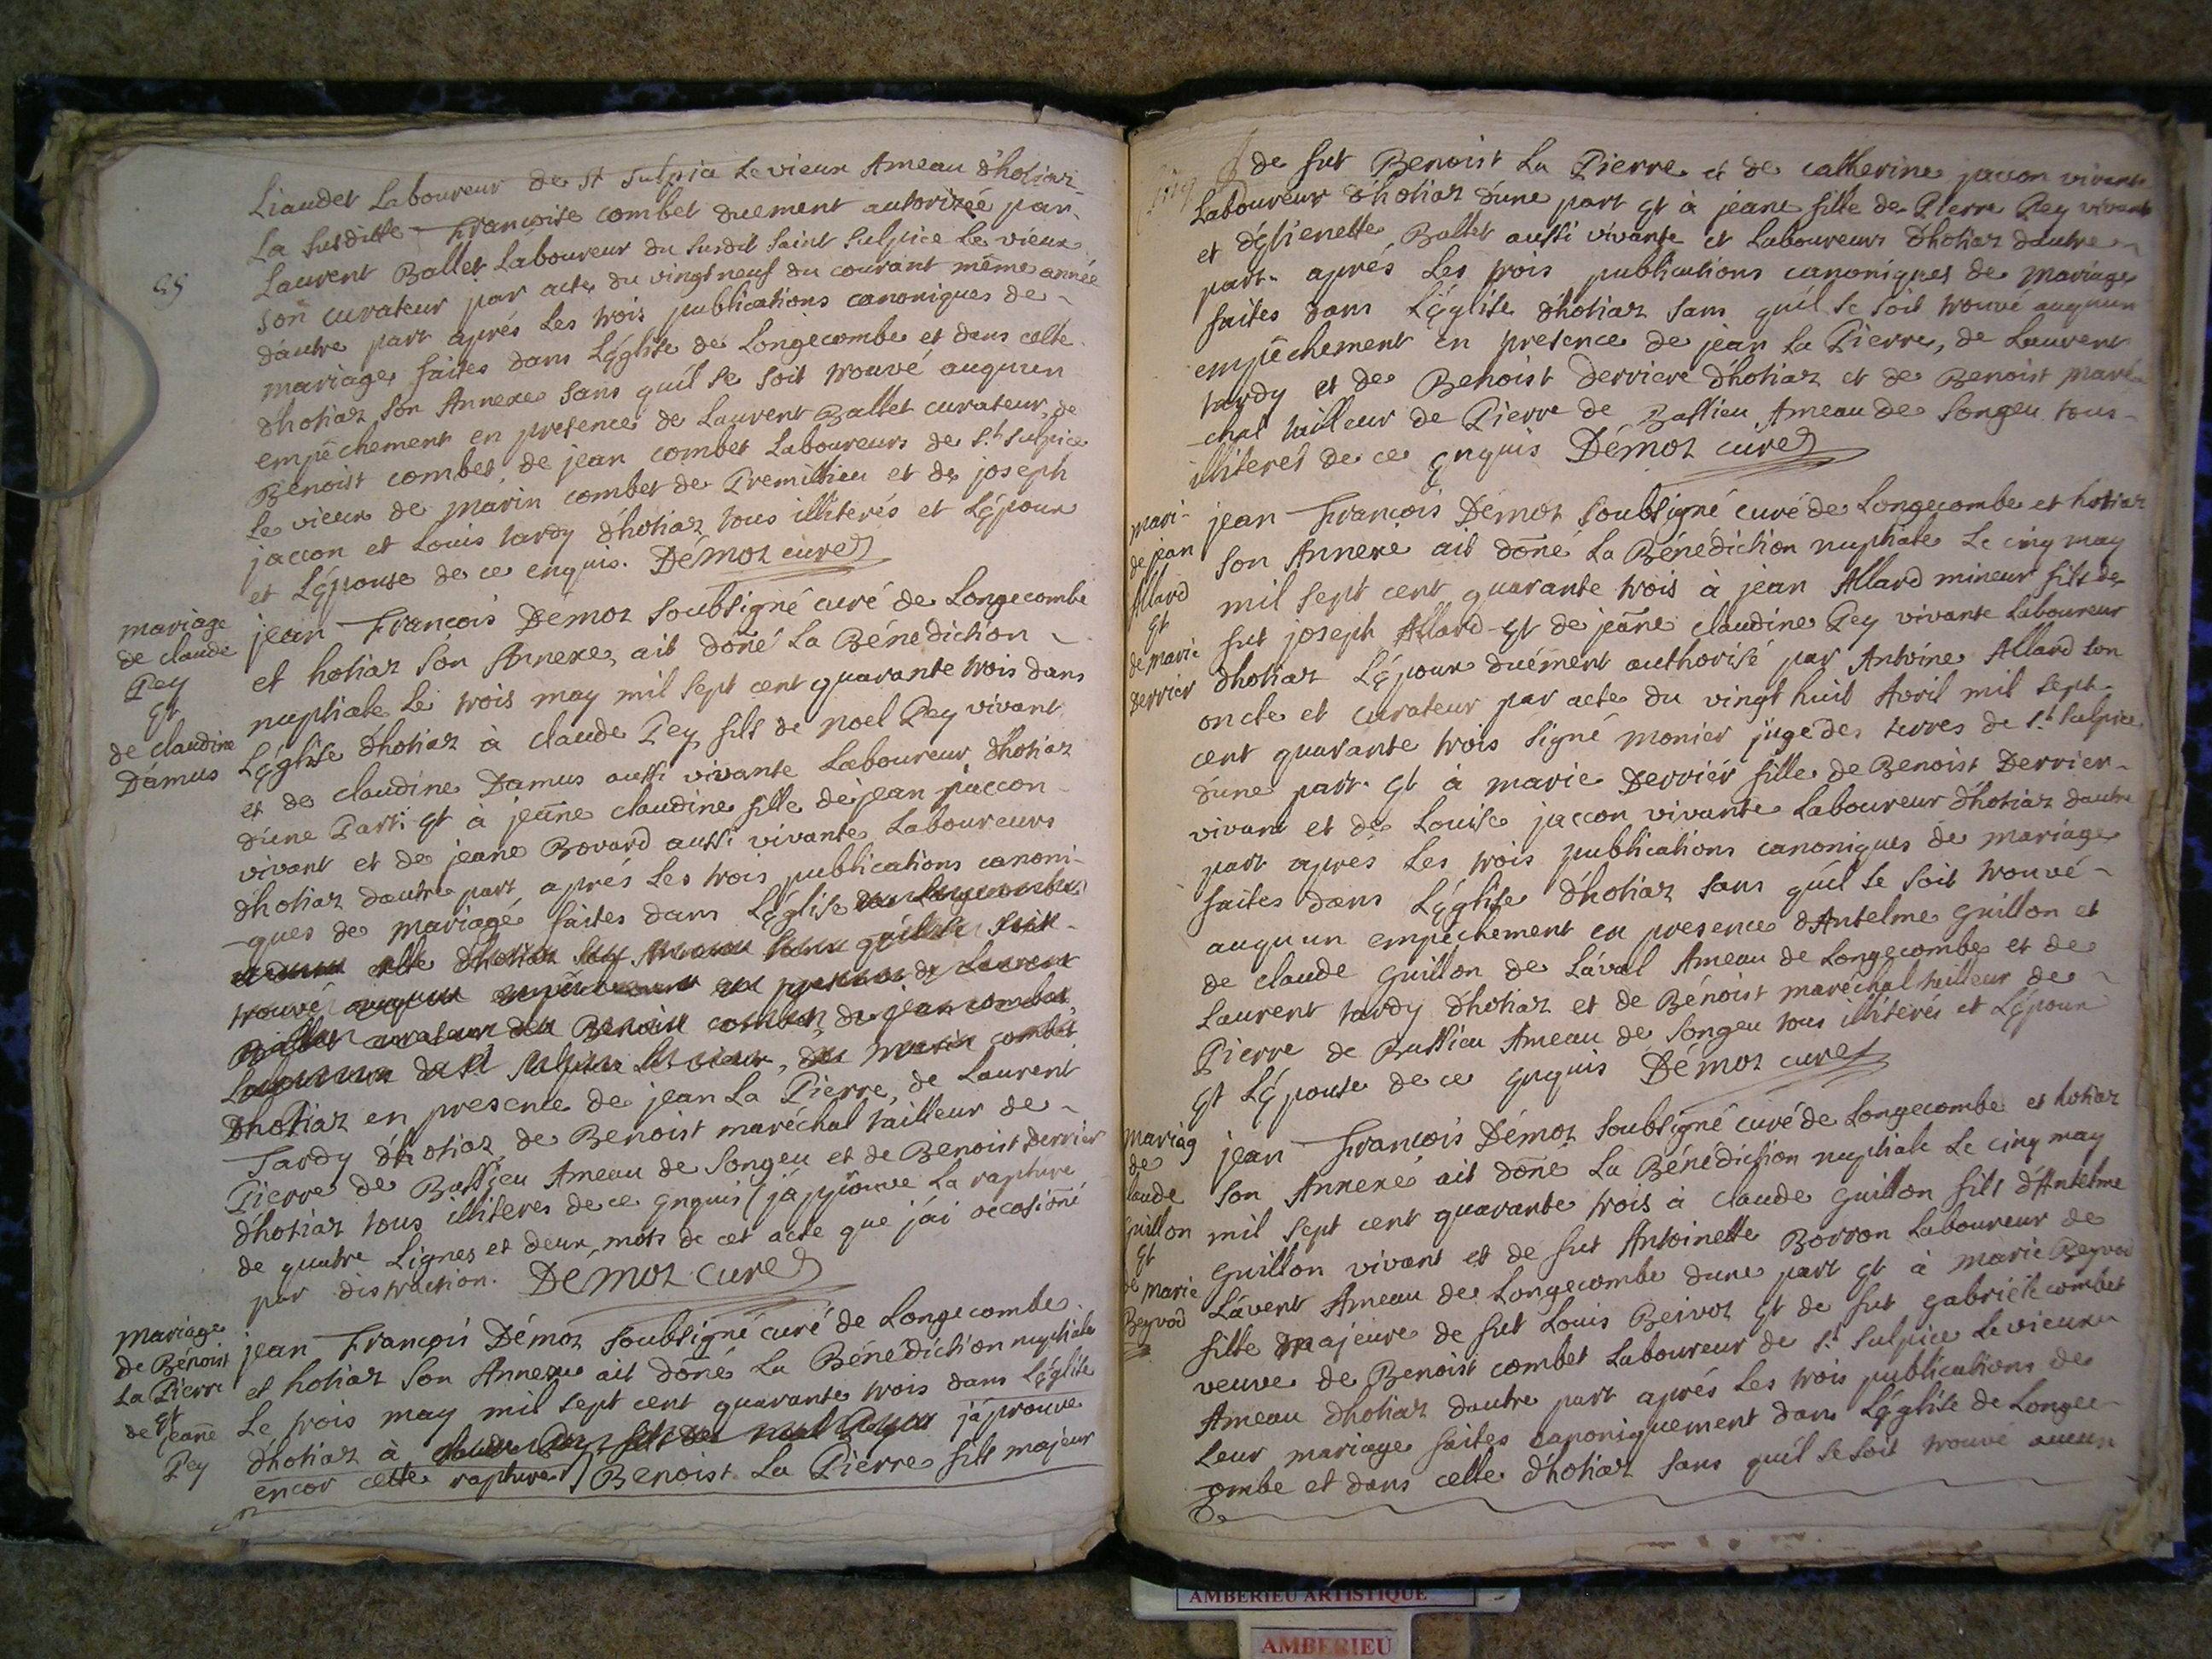 Liaudet Laboureur de st sulpice Le vieux Ameau d'hotiaz
La susditte Francoise combet duement autorizée par
Laurent Ballet Laboureur du susdit saint sulpice Le vieux
son curateur par acte du vingt neuf du courant même année
d'autre part aprés Les trois publications canoniques de
mariage faites dans L'église de Longecombe et dans celle
d'hotiaz son Annexe sans qu'il se soit trouvé auqu'un
empêchement en presence de Laurent Ballet curateur, de
Benoist combet, de jean combet Laboureurs de S.t sulpice
Le vieux de marin combet de Premillieu et de joseph
jaccon et Louis tardy d'hotiaz tous illiterés et L'époux
et L'épouse de ce enquis. Démoz curé
mariage
de claude
Pey
et
de claudine
Damus
jean Francois Démoz soubsigné curé de Longecombe
et hotiaz son Annexe, ait doñé La Bénediction
nuptiale Le trois may mil sept cent quarante trois dans
L'église d'hotiaz à claude Pey fils de noel Pey vivant
et de claudine Damus aussi vivante Laboureur d'hotiaz
d'une Part. et à jeañe claudine fille de jean jaccon
vivant et de jeane Bovard aussi vivante Laboureurs
d'hotiaz d'autre part, aprés Les trois publications canoni-
-ques de mariage faites dans L'église de Longecombe
celle d'hotiaz son Annexe sans qu'il se soit
trouvé auqu'un empêchement en presence de Laurent
Ballet curateur de Benoist combet, de jean combet
Laboureurs de st sulpice Le vieux, de marin combet
D'hotiaz en presence de jean La Pierre, de Laurent
Tardy d'hotiaz, de Benoist maréchal tailleur de
Pierre de Bassieu Ameau de Songeu et de Benoist Derrier
d'hotiaz tous illiteres de ce enquis (j'approuve La rapture
de quatre Lignes et deux mots de cet acte que j'ai occasioñé
par distraction. Démoz curé
mariage
de Bénoist
La Pierre
et
de jeañe
Pey
jean François Démoz soubsigné curé de Longecombe
et hotiaz son Annexe ait doñé La Bénédiction nuptiale
Le trois may mil sept cent quarante trois dans L'église
d'hotiaz à claude Pey fils de noel Pey j'aprouve
encor cette rapture) Benoist La Pierre fils majeur
de fut Benoist La Pierre et de catherine jaccon vivante
Laboureur d'hotiaz d'une part et à jeane fille de Pierre Pey vivant
et d'étienette Ballet aussi vivante et Laboureurs d'hotiaz d'autre
part. aprés Les trois publications canoniques de mariage
faites dans L'église d'hotiaz sans qu'il se soit trouvé auqu'un
empêchement en presence de jean La Pierre, de Laurent
tardy et de Benoist Derriere d'hotiaz et de Benoist maré-
-chal tailleur de Pierre de Bassieu Ameau de Songeu tous
illiterés de ce enquis Démoz curé
mari-
de jean
Allard
et
de marie
Derrier
jean François Démoz soubsigné curé de Longecombe et hotiaz
son Annexe ait doñé La Bénediction nuptiale Le cinq may
mil sept cent quarante trois à jean Allard mineur fils de
fut joseph Allard et de jeañe claudine Pey vivante Laboureur
d'hotiaz L'époux duément authorisé par Antoine Allard son
oncle et curateur par acte du vingt huit Avril mil sept
cent quarante trois signé monier juge des terres de S.t sulpice
d'une part. et à marie Derrier fille de Benoist Derrier
vivant et de Louise jaccon vivante Laboureur d'hotiaz d'autre
part aprés Les trois publications canoniques de mariage
faites dans L'église d'hotiaz sans qu'il se soit trouvé
auqu'un empêchement en presence d'Antelme Guillon et
de claude Guillon de Lával Ameau de Longecombe et de
Laurent tardy d'hotiaz et de Bénoist maréchal tailleur de
Pierre de Bassieu Ameau de Songeu tous illiterés et L'époux
et L'épouse de ce enquis Démoz curé
mariag
de
laude
Guillon
et
de marie
Beyvod
jean François Démoz soubsigné curé de Longecombe et hotiaz
son Annexe ait doñé La Bénédiction nuptiale Le cinq may
mil sept cent quarante trois à claude Guillon fils d'Antelme
Guillon vivant et de fut Antoinette Borron Laboureur de
Lávent Ameau de Longecombe d'une part et à marie Beyvod
fille majeure de fut Louis Beivoz et de fut gabriéle combet
veuve de Benoist combet Laboureur de S.t sulpice Le vieux
Ameau d'hotiaz d'autre part aprés Les trois publications de
Leur mariage faites canoniquement dans L'église de Longec-
ombe et dans celle d'hotiaz sans qu'il se soit trouvé aucun
AMBERIEU ARTISTIQUE
AMBERIEU